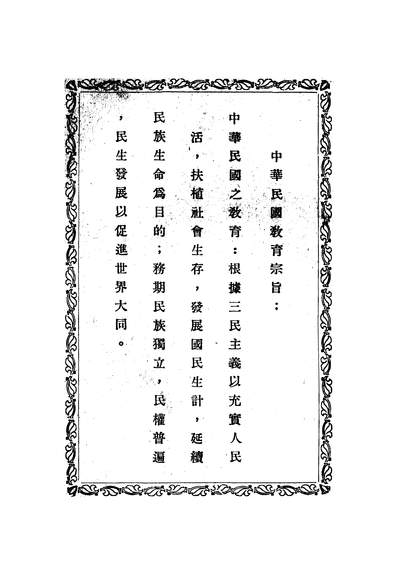 中華民國教育宗旨：
中華民國之教育：根據三民主義以充實人民
活，扶植社會生存，發展國民生計，延續
民族生命爲目的；務期民族獨立，民權普遍
，民生發展以促進世界大同。